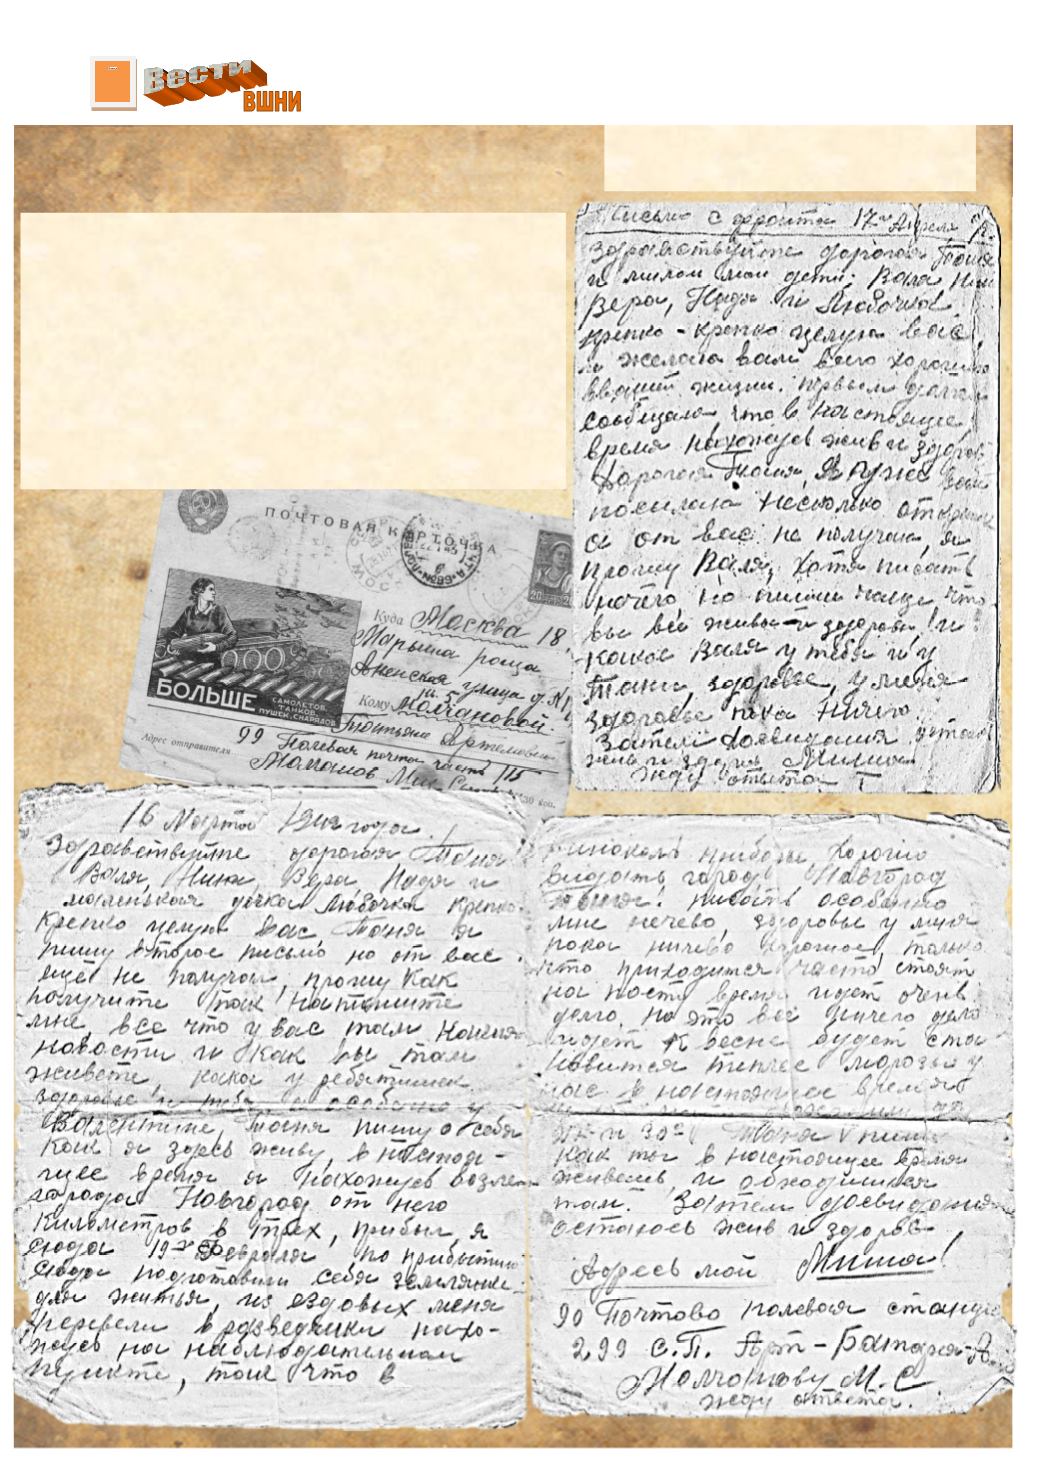 Вести
ВШНИ
Письмо с фронта 17го Апреля
Здравствуйте дорогая Таня
и милаи маи дети: Валя Нина
Вера, Надя и Любочка
крепко-крепко целую вас
и желаю вам всего хорошего
ввашей жизни. первым долгом
сообщаю что в настоящее
время нахожусь жив и здоров
Дорогая Таня, я уже вам
посилала несколько открыток
а от вас не получал, я
прошу Валя, хотя писать
нечего, но пиши чаще что
вы все живы и здоровы! и
какое Валя у тебя и у
Тани, здоровье, у меня
здоровье пока ничего
Затем досвидания остаюсь
жив и здоров Миша
жду ответа
ПОЧТОВАЯ КАРТОЧКА
Куда Москва 18,
Марьина роща
улица д. №
Кому Молчановой
Татьяне Артемовне
БОЛЬШЕ
САМОЛЕТОВ,
ТАНКОВ,
ПУШЕК, СНАРЯДОВ
Адрес отправителя 99 Полевая почта часть 115
16 Марта 1942 года.
Здравствуйте дорогая Таня!
Валя, Нина, Вера, Надя и
маленькая дочка Любочка крепко
крепко целую вас Таня я
пишу второе письмо но от вас
ещё не получал, прошу как
получите так напишите
мне, все что у вас там
новости и как вы там
живете, како у ребятишек
здоровье и тебя и особено у
Валентине, Таня пишу о себя
как я здесь живу, в настоя-
щее время я нахожусь возле
города Новгород от него
километров в трех, прибыл я
сюда 19го Февраля по прибытию
сюда подготовили себя землянки
для житья, из ездовых меня
перевели в разведчики нахо-
жусь на наблюдательном
пункте, так что в
бинокль прибора хорошо
видать город Новгород
Таня! писать особенно
мне нечево, здоровье у миня
пока ничево хорошое, только
что приходится часто стоять
на посту время идет очень
долго, но это все ничего дело
идет к весне будет ста
новится теплее морозы у
нас в настоящее время
30° Таня! пиши
как ты в настоящее время
живешь, и обходишься
там. Затем досвидания
остаюсь жив и здоров
Миша!
Адресь мой
90 Почтово полевая станция
299 с.П. Арт-Батарея
Молчанову М. С
жду ответа.